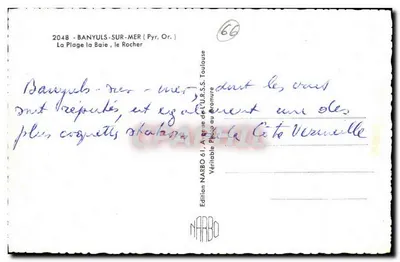 2048 - BANYULS-SUR-MER (Pyr. Or.)
La Plage la Baie, le Rocher
66
Banyuls-sur-mer, dont les vins
sont réputés, est également une des
plus coquettes stations de la Côte Vermeille
Edition NARBO 61, de l'U.R.S.S. Toulouse
Véritable Photo au
NARBO